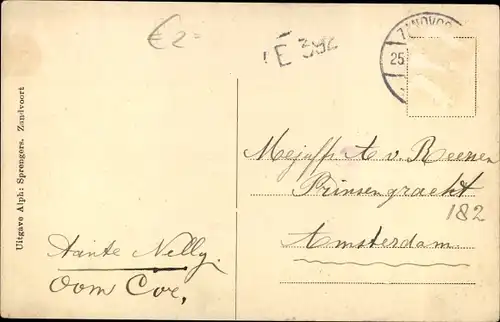 €2=
E 392
ZANDVOO
25
Uitgave Alph: Sprengers. Zandvoort
Mejuffr A v. Reesen
Prinsengracht
182
Amsterdam.
Tante Nelly.
Oom Cor,